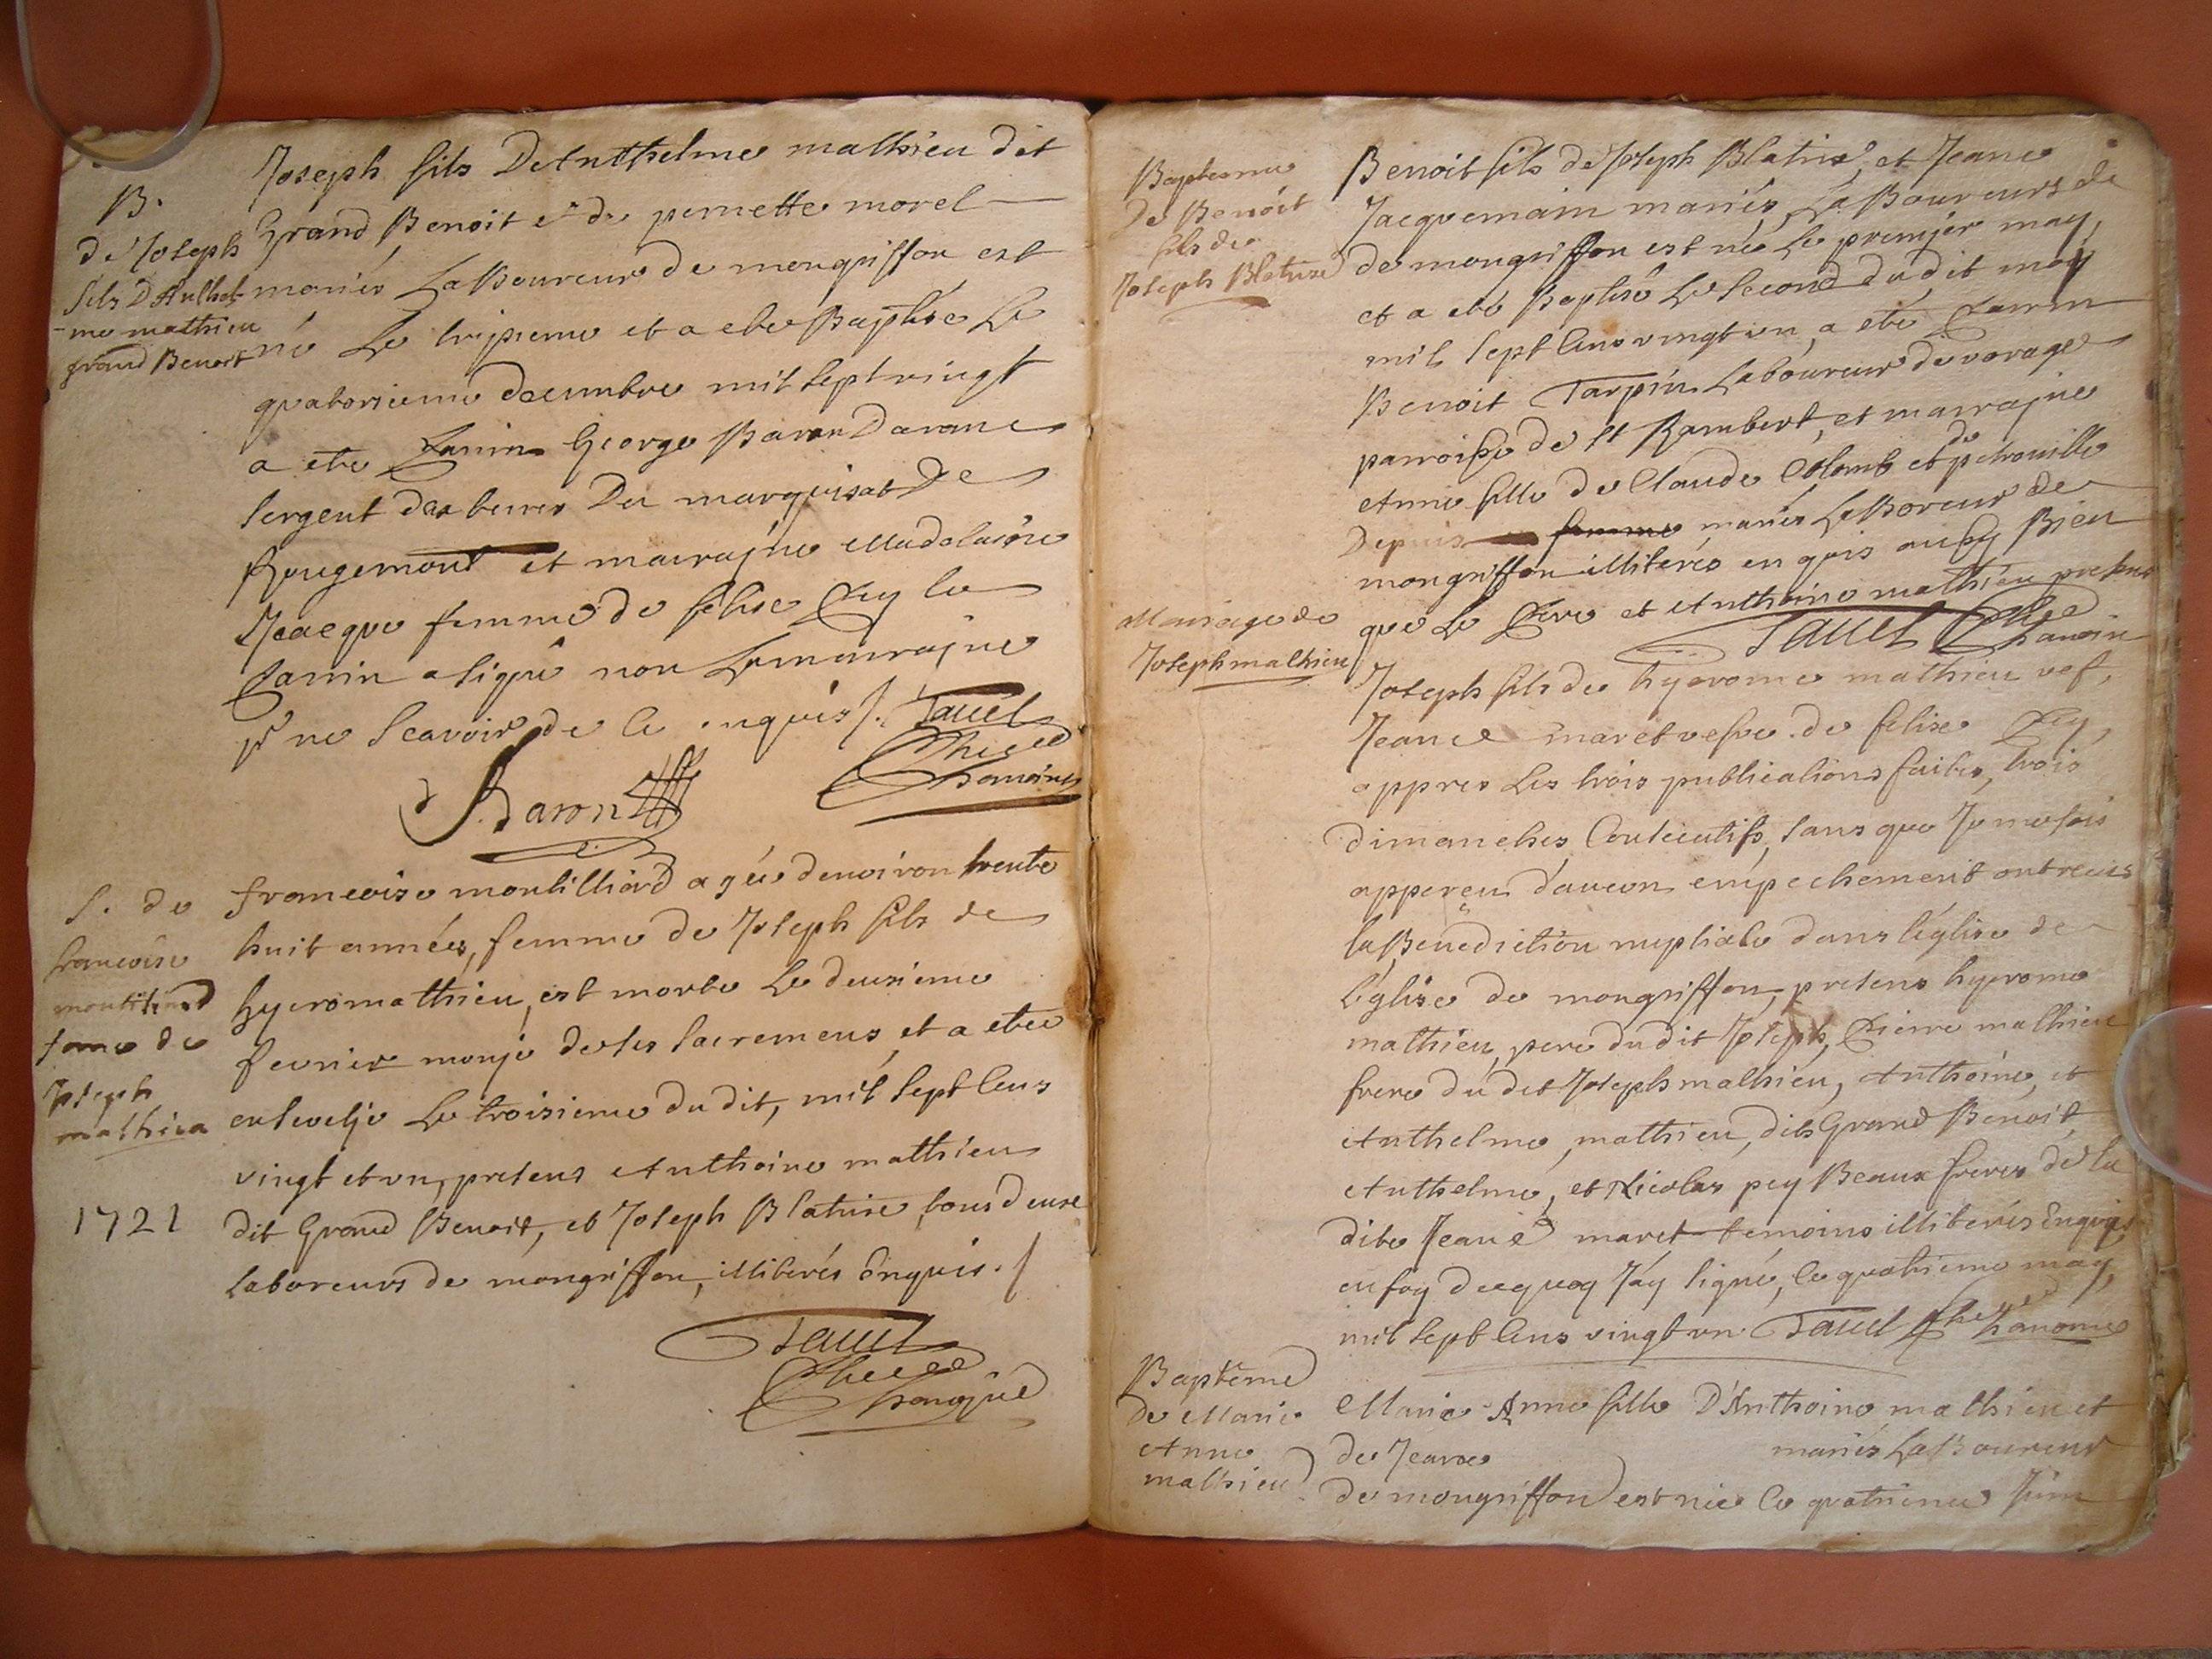 B.
de Joseph
fils D'Anthel-
-me mathieu
grand Benoit
Joseph fils D'Anthelme mathieu dit
Grand Benoit et de pernette morel
mariés Laboureur de mongriffon est
né Le treisieme et a ete Baptisé Le
quatorsieme decembre mil sept vingt
a ete parrin George Baron Daranc
sergent des terres Du marquisat De
Rougemont et marrajne Madelaine
Jacque femme de felise pey le
parrin a signé non La marrajne
pr ne scavoir de ce enquis /. Tavel
Baron
chanoine
S. de
francoise
montilliard
fame de
Joseph
mathieu
1721
francoise montilliard agée denviron trente
huit années, femme de Joseph fils de
hyerome mathieu, est morte Le deusieme
fevrier munje de ses sacremens, et a etee
ensevelje Le troisieme dudit, mil sept cens
vingt et un, presens Anthoine mathieu
dit Grand Benoit, et Joseph Blatrise, tous deuxe
laboreurs de mongriffon, illiterés Enquis. /
Tavel
chanojne
Bapteme
De Benoit
fils de
Joseph Blatrise
Benoit fils de Joseph Blatrise, et Jeane
Jacquemain mariés, LaBoureurs de
de mongriffon est né Le premjer may,
et a eté Baptisé Le second dudit may
mil sept cens vingt un, a eté parrin
Benoit Tarpin Laboureur de vorage
parroisse de st Rambert, et marrajne
Anne fille de Claude Colomb et de petronille
Depuis femme mariés LaBoreur de
mongriffon illiterés enquis aussy Bien
que Le pere et Anthoine mathieu presens
Tavel
chanoin
Mariage de
Joseph mathieu
Joseph fils de hyerome mathieu vef,
Jeane maret vefve de felise pey,
appres Les trois publications faites, trois
dimanches Consecutifs, sans que Je me sois
appereu d'aucun empechement ont receus
la Benediction nuptiale dans l'église de
l'église de mongriffon, presens hyerome
mathieu, pere dudit Joseph, Pierre mathieu
frere du dit Joseph mathieu, Anthoine, et
Anthelme, mathieu, dits Grand Benoit,
Anthelme, et Nicolas pey Beaux freres de la
dite Jeane maret temoins illiterés Enquis
en foy dequoy J'ay signé, le quatrieme may,
mil sept cens vingt un. Tavel chanoine
Bapteme
De Marie
Anne
mathieu
Marie Anne fille D'Anthoine mathieu et
de Jeane mariés LaBoureur
de mongriffon est née le quatrieme Juin